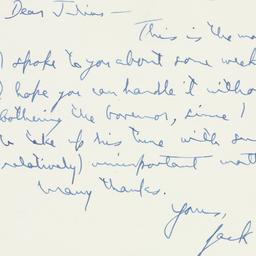 Dear Julius —
This is the ma
I spoke to you about some week
I hope you can handle it withou
bothering the Governor, since I
to take up his time with su
(relatively) unimportant matt
Many thanks.
Yours,
Jack